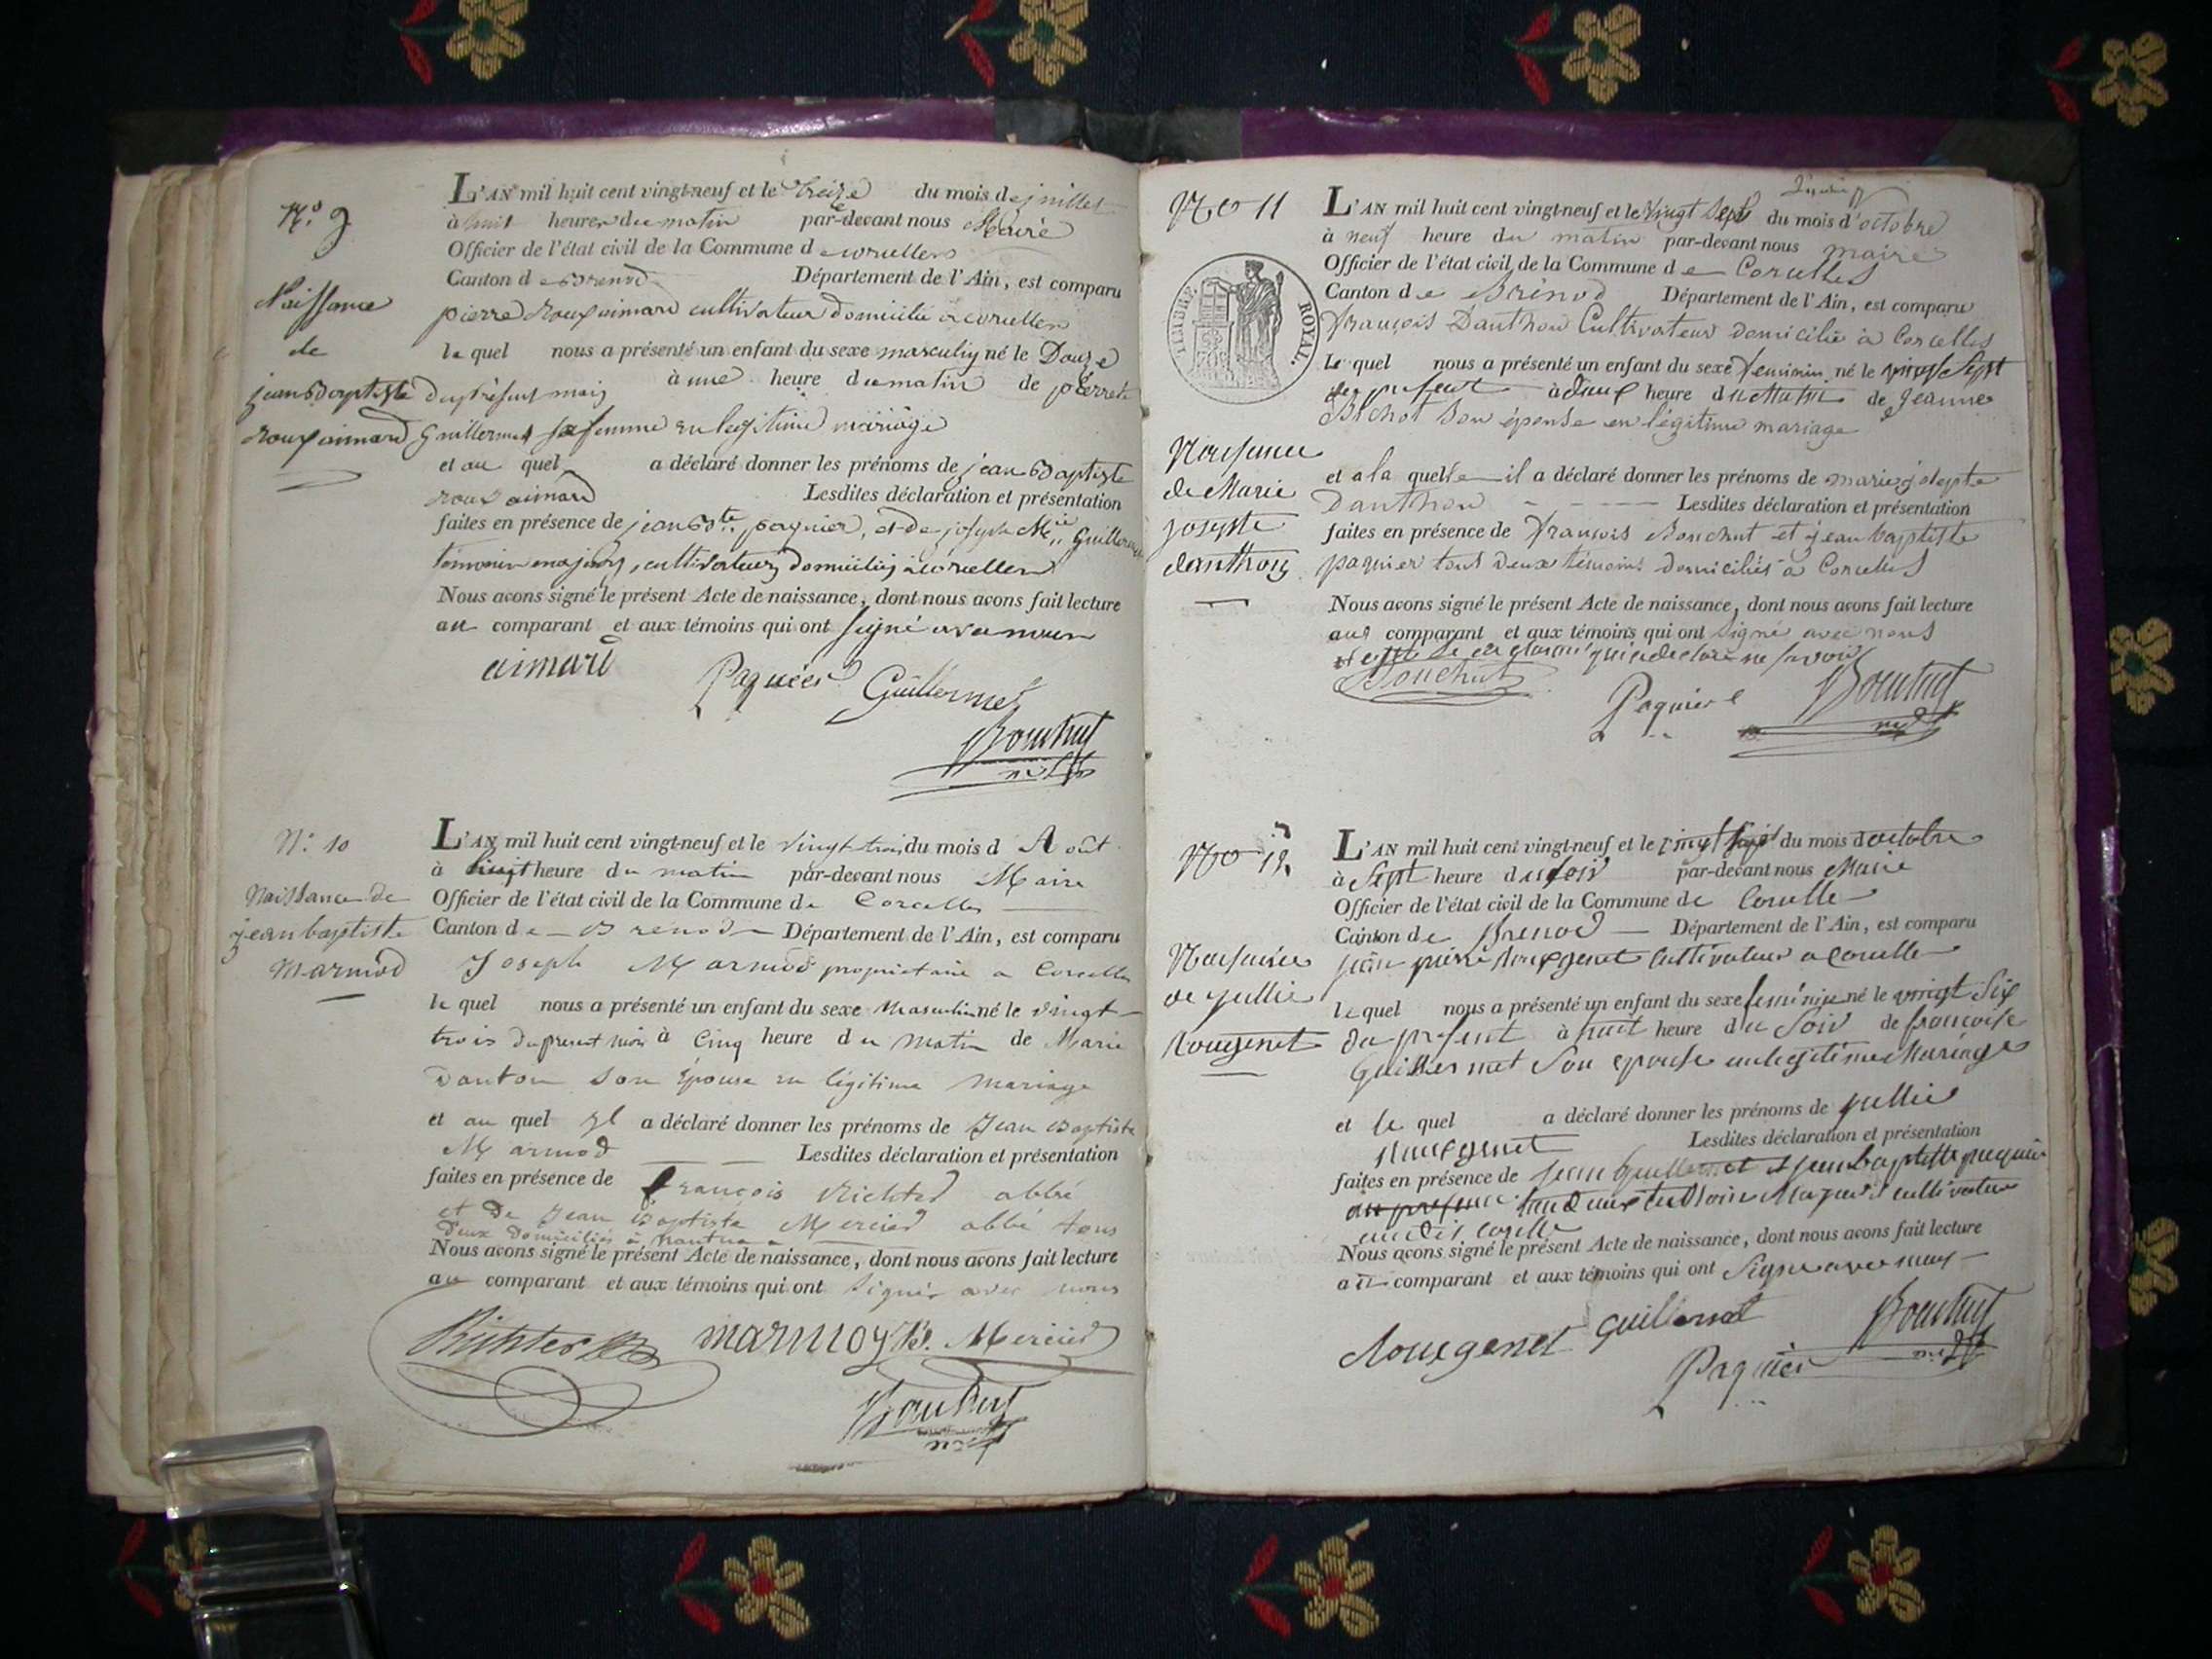 N.o 9
Naissance
de
jean Baptiste
Roux aimard
L'AN mil huit cent vingt-neuf et le treize du mois de juillet
à huit heures du matin par-devant nous Maire
Officier de l'état civil de la Commune de corcelles
Canton de Brenod Département de l'Ain, est comparu
pierre Roux aimard cultivateur domicilié à corcelles
le quel nous a présenté un enfant du sexe masculin né le Douze
du présent mois à une heure du matin de pierrete
Guillermet sa femme en legitime mariage
et au quel a déclaré donner les prénoms de jean Baptiste
roux aimard Lesdites déclaration et présentation
faites en présence de jean Bte. paquier, et de joseph Mie. Guillermet
temoins majeurs, cultivateurs domiciliés à corcelles
Nous avons signé le présent Acte de naissance, dont nous avons fait lecture
au comparant et aux témoins qui ont signé avec nous
aimard Paquier Guillermet
Bouchut
N.o 10
Naissance de
jean baptiste
Marmod
L'AN mil huit cent vingt-neuf et le vingt trois du mois d Août
à huit heure du matin par-devant nous Maire
Officier de l'état civil de la Commune de Corcelles
Canton de Brenod Département de l'Ain, est comparu
Joseph Marmod propriétaire a Corcelles
le quel nous a présenté un enfant du sexe Masculin né le vingt
trois du present mois à Cinq heure du matin de Marie
Danton son Épouse en légitime Mariage
et au quel yl a déclaré donner les prénoms de Jean Baptiste
Marmod Lesdites déclaration et présentation
faites en présence de François Richted abbé
et de Jean Baptiste Mercier abbé tous
deux domiciliés à nantua
Nous avons signé le présent Acte de naissance, dont nous avons fait lecture
au comparant et aux témoins qui ont signés avec nous
Richter marmoy Mercier
Bouchut
No 11
TIMBRE ROYAL.
Naissance
de Marie
josepte
danthon
L'AN mil huit cent vingt-neuf et le vingt sept du mois d'octobre
à neuf heure du matin par-devant nous maire
Officier de l'état civil de la Commune de Corcelles
Canton de Brénod Département de l'Ain, est comparu
François Danthon Cultivateur domicilié à Corcelles
Le quel nous a présenté un enfant du sexe feminin né le vingt Sept
du present à deux heure du Matin de Jeanne
Bichot son épouse en légitime mariage
et a la quelle il a déclaré donner les prénoms de marie josepte
Danthon Lesdites déclaration et présentation
faites en présence de François Bouchut et jean baptiste
paquier tous deux témoins domiciliés à Corcelles
Nous avons signé le présent Acte de naissance, dont nous avons fait lecture
aux comparant et aux témoins qui ont signé avec nous
qui a déclaré ne savoir
Bouchut Paquier Bouchut
No 12
Naissance
de jullie
Rougenet
L'AN mil huit cent vingt-neuf et le vingt sept du mois d octobre
à Sept heure du soir par-devant nous Maire
Officier de l'état civil de la Commune de Corcelle
Canton de Brenod Département de l'Ain, est comparu
jean pierre Rouxgenet Cultivateur a Corcelle
le quel nous a présenté un enfant du sexe feminin né le vingt Six
du present à huit heure du Soir de francoise
Guillermet Son epouse en legitime Mariage
et le quel a déclaré donner les prénoms de jullie
Rouxgenet Lesdites déclaration et présentation
faites en présence de jean Guillermet et jean baptiste paquier
tous deux temoins Majeurs cultivateur
audit Corcelle
Nous avons signé le présent Acte de naissance, dont nous avons fait lecture
au comparant et aux témoins qui ont Signé avec nous
Rouxgenet Guillermet Bouchut
Paquier